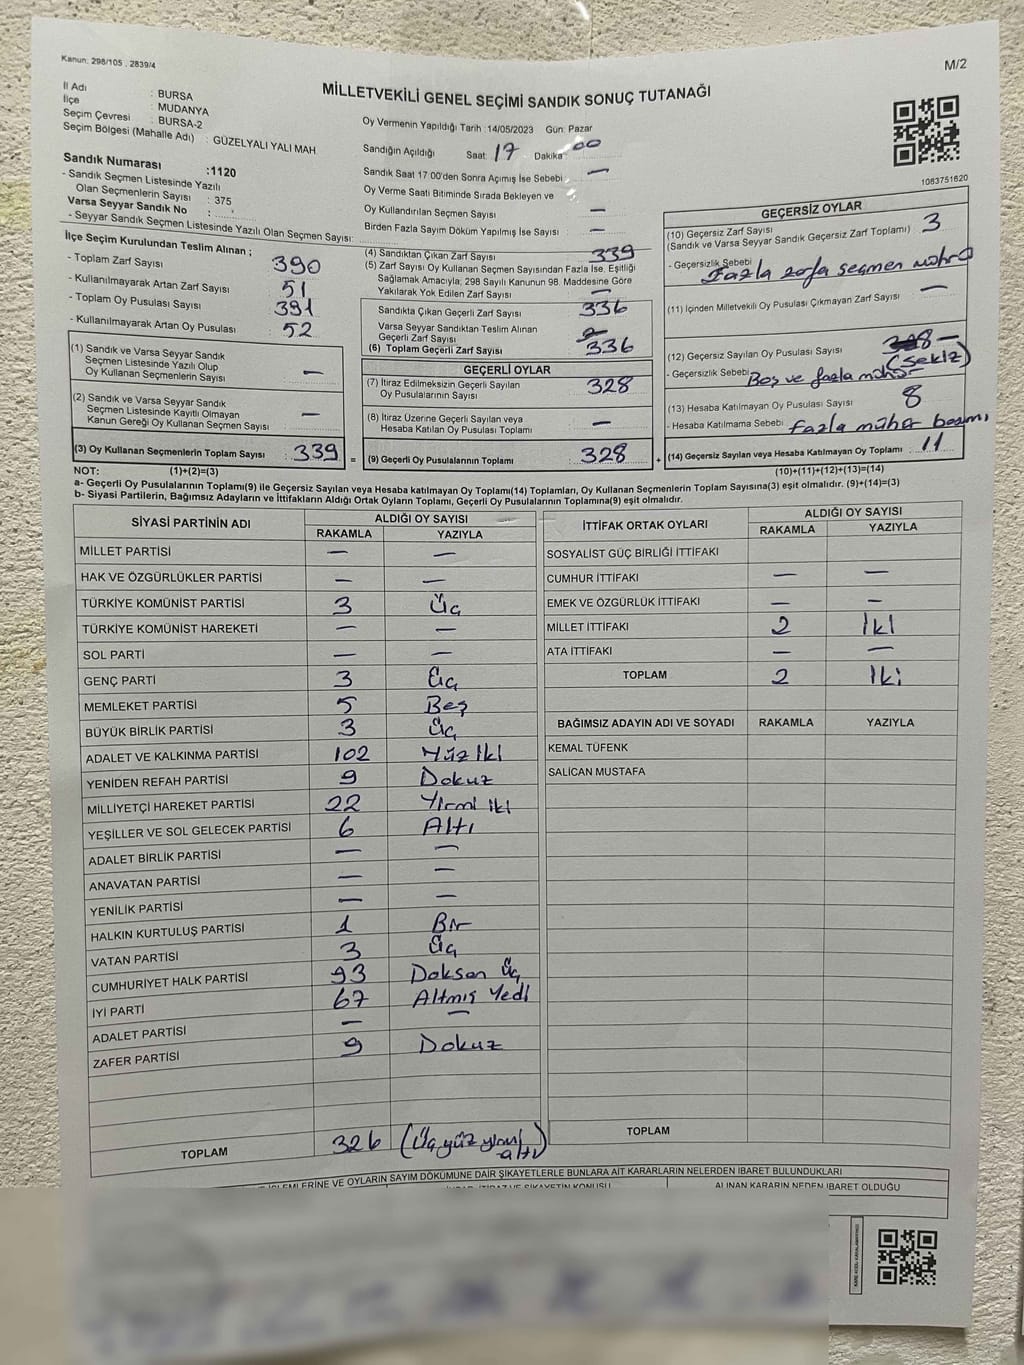 Kanun: 298/105 , 2839/4
M/2
MİLLETVEKİLİ GENEL SEÇİMİ SANDIK SONUÇ TUTANAĞI
İl Adı : BURSA
İlçe : MUDANYA
Seçim Çevresi : BURSA-2
Seçim Bölgesi (Mahalle Adı) : GÜZELYALI YALI MAH
Sandık Numarası :1120
- Sandık Seçmen Listesinde Yazılı
Olan Seçmenlerin Sayısı : 375
Varsa Seyyar Sandık No :
- Seyyar Sandık Seçmen Listesinde Yazılı Olan Seçmen Sayısı:
İlçe Seçim Kurulundan Teslim Alınan ;
- Toplam Zarf Sayısı 390
- Kullanılmayarak Artan Zarf Sayısı 51
- Toplam Oy Pusulası Sayısı 391
- Kullanılmayarak Artan Oy Pusulası 52
(1) Sandık ve Varsa Seyyar Sandık
Seçmen Listesinde Yazılı Olup
Oy Kullanan Seçmenlerin Sayısı : —
(2) Sandık ve Varsa Seyyar Sandık
Seçmen Listesinde Kayıtlı Olmayan
Kanun Gereği Oy Kullanan Seçmen Sayısı : —
(3) Oy Kullanan Seçmenlerin Toplam Sayısı : 339 =
Oy Vermenin Yapıldığı Tarih :14/05/2023 Gün: Pazar
Sandığın Açıldığı Saat: 17 Dakika: 00
Sandık Saat 17:00'den Sonra Açımış İse Sebebi : —
Oy Verme Saati Bitiminde Sırada Bekleyen ve
Oy Kullandırılan Seçmen Sayısı : —
Birden Fazla Sayım Döküm Yapılmış İse Sayısı : —
(4) Sandıktan Çıkan Zarf Sayısı : 339
(5) Zarf Sayısı Oy Kullanan Seçmen Sayısından Fazla İse, Eşitliği
Sağlamak Amacıyla; 298 Sayılı Kanunun 98. Maddesine Göre
Yakılarak Yok Edilen Zarf Sayısı : —
Sandıkta Çıkan Geçerli Zarf Sayısı : 336
Varsa Seyyar Sandıktan Teslim Alınan
Geçerli Zarf Sayısı
(6) Toplam Geçerli Zarf Sayısı : 336
GEÇERLİ OYLAR
(7) İtiraz Edilmeksizin Geçerli Sayılan
Oy Pusulalarının Sayısı : 328
(8) İtiraz Üzerine Geçerli Sayılan veya
Hesaba Katılan Oy Pusulası Toplamı : —
(9) Geçerli Oy Pusulalarının Toplamı : 328 +
1063751620
GEÇERSİZ OYLAR
(10) Geçersiz Zarf Sayısı 3
(Sandık ve Varsa Seyyar Sandık Geçersiz Zarf Toplamı) :
- Geçersizlik Sebebi : Fazla zarfa seçmen mührü
(11) İçinden Milletvekili Oy Pusulası Çıkmayan Zarf Sayısı : —
(12) Geçersiz Sayılan Oy Pusulası Sayısı 8 —
(sekiz)
- Geçersizlik Sebebi : Boş ve fazla mühür
(13) Hesaba Katılmayan Oy Pusulası Sayısı : 8
- Hesaba Katılmama Sebebi : fazla mühür basımı
(14) Geçersiz Sayılan veya Hesaba Katılmayan Oy Toplamı : 11
NOT: (1)+(2)=(3) (10)+(11)+(12)+(13)=(14)
a- Geçerli Oy Pusulalarının Toplamı(9) ile Geçersiz Sayılan veya Hesaba katılmayan Oy Toplamı(14) Toplamları, Oy Kullanan Seçmenlerin Toplam Sayısına(3) eşit olmalıdır. (9)+(14)=(3)
b- Siyasi Partilerin, Bağımsız Adayların ve İttifakların Aldığı Ortak Oyların Toplamı, Geçerli Oy Pusulalarının Toplamına(9) eşit olmalıdır.
SİYASİ PARTİNİN ADI ALDIĞI OY SAYISI
RAKAMLA YAZIYLA
MİLLET PARTİSİ — —
HAK VE ÖZGÜRLÜKLER PARTİSİ — —
TÜRKİYE KOMÜNİST PARTİSİ 3 Üç
TÜRKİYE KOMÜNİST HAREKETİ — —
SOL PARTİ — —
GENÇ PARTİ 3 Üç
MEMLEKET PARTİSİ 5 Beş
BÜYÜK BİRLİK PARTİSİ 3 Üç
ADALET VE KALKINMA PARTİSİ 102 Yüz İki
YENİDEN REFAH PARTİSİ 9 Dokuz
MİLLİYETÇİ HAREKET PARTİSİ 22 Yirmi iki
YEŞİLLER VE SOL GELECEK PARTİSİ 6 Altı
ADALET BİRLİK PARTİSİ — —
ANAVATAN PARTİSİ — —
YENİLİK PARTİSİ — —
HALKIN KURTULUŞ PARTİSİ 1 Bir
VATAN PARTİSİ 3 Üç
CUMHURİYET HALK PARTİSİ 93 Doksan Üç
İYİ PARTİ 67 Altmış Yedi
ADALET PARTİSİ — —
ZAFER PARTİSİ 9 Dokuz
TOPLAM 326 (Üçyüz yirmi
altı)
İTTİFAK ORTAK OYLARI ALDIĞI OY SAYISI
RAKAMLA YAZIYLA
SOSYALİST GÜÇ BİRLİĞİ İTTİFAKI
CUMHUR İTTİFAKI — —
EMEK VE ÖZGÜRLÜK İTTİFAKI — —
MİLLET İTTİFAKI 2 İki
ATA İTTİFAKI — —
TOPLAM 2 İki
BAĞIMSIZ ADAYIN ADI VE SOYADI RAKAMLA YAZIYLA
KEMAL TÜFENK
SALİCAN MUSTAFA
TOPLAM
İŞLEMLERİNE VE OYLARIN SAYIM DÖKÜMÜNE DAİR ŞİKAYETLERLE BUNLARA AİT KARARLARIN NELERDEN İBARET BULUNDUKLARI
İTİRAZ VE ŞİKAYETİN KONUSU ALINAN KARARIN NEDEN İBARET OLDUĞU